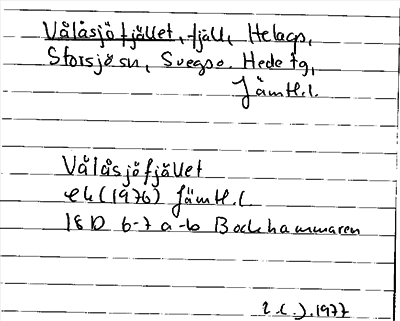 Vålåsjöfjället, fjäll, Helags,
Storsjö sn, Svegs o. Hede tg,
Jämtl.l.
Vålåsjöfjället
ek (1976) Jämtl.l.
18D 6-7 a-b Bockhammaren
1977